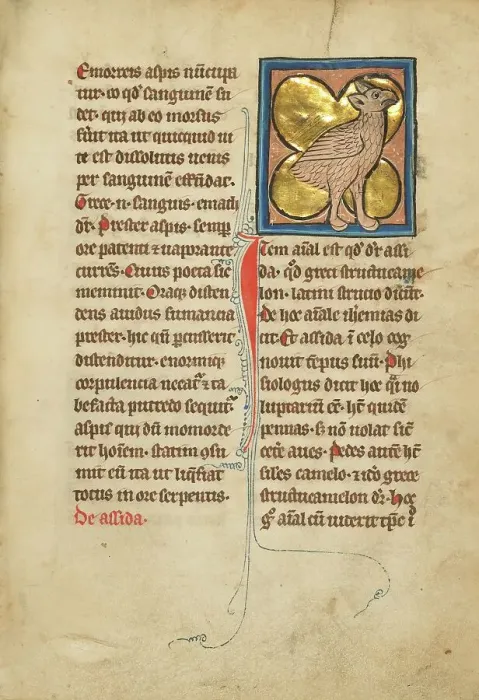 Emorrois aspis nūcupa
tur· eo qd̕ sanguinē su
det· qui ab eo morsus
fūit ita ut quicquid ui
te est dissolutis uenis
per sanguinē effūdat·
Grece·n·sanguis·emath
dr̄· Prester aspis· semp̄
ore patenti ⁊ uaporante
currēs· Cuius poeta sic
meminit· Oraqꝫ disten
dens auidus fumantia
prester· hic qm̄ percusserit
distenditur· enormiqꝫ
corpulencia necat᷑ ⁊ ta
befacta putredo sequit᷑
aspis qui dū momorde
rit hoīem· statim ꝯsu
mit eū ita ut liq̄fiat
totus in ore serpentis·
De assida·
Item aīal est qd̕ dr̄ assi
da· qd̕ greci structucame
lon· latini strucio dicūt·
De hoc aūale iheremias di
cit· Et assida ī celo cog
nouit tēpus suū· Phi
siologus dicit hoc q̄i uo
luptariū eē· ht̄ quidē
pennas· sꝫ nō uolat sic̄
cet̄e aues· Pedes autē ht̄
siles camelo· ⁊ ido grece
structucamelon dr̄· Hoc
gͦ aīal cū uenerit tp̄c ī